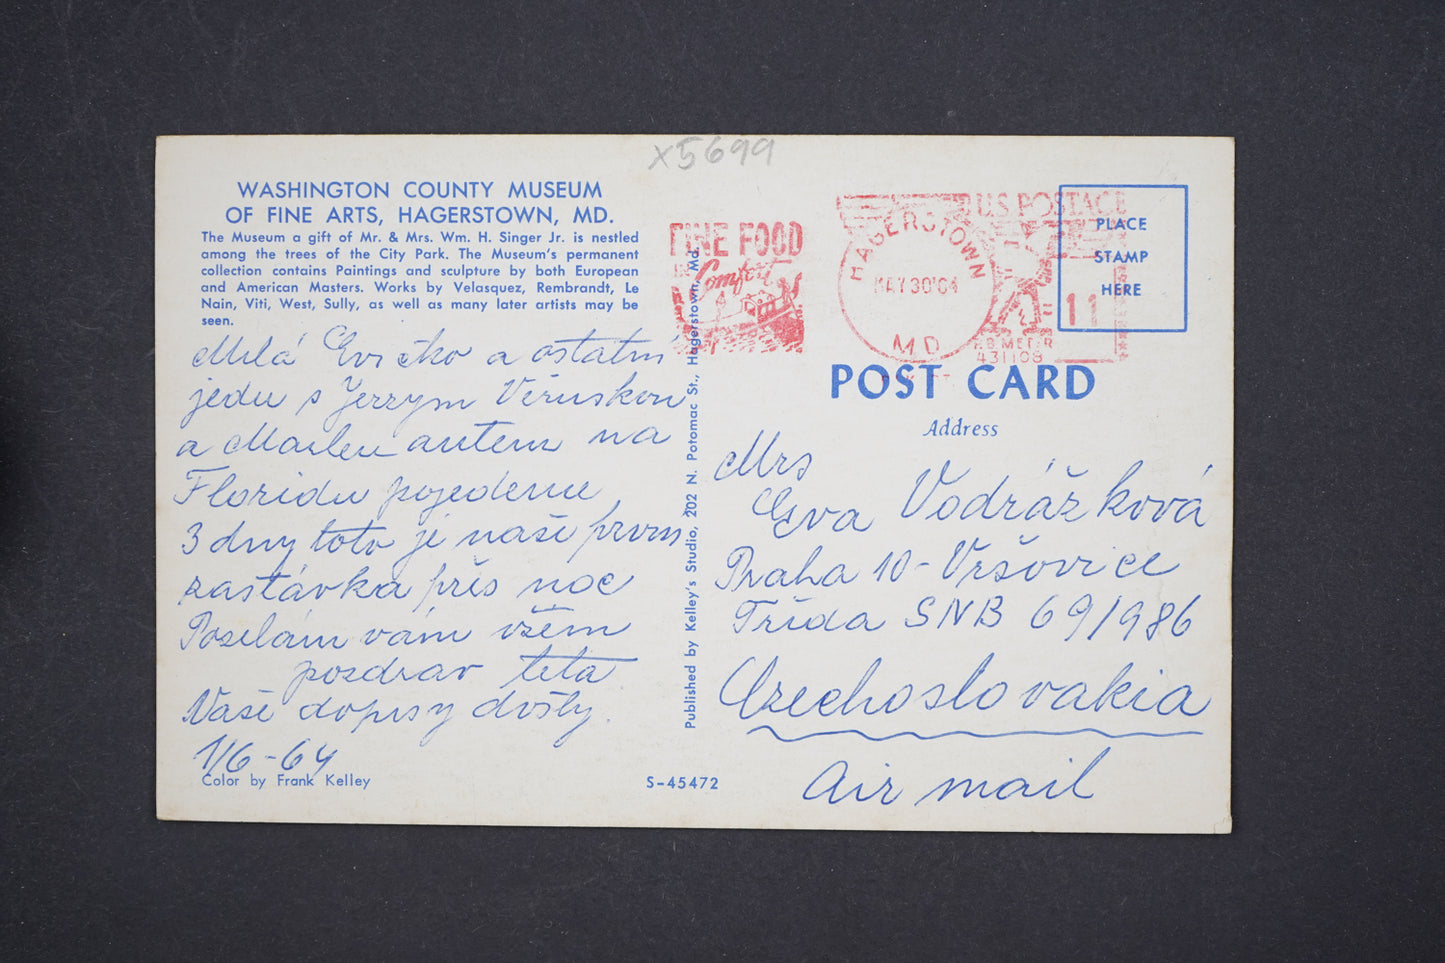 x5699
WASHINGTON COUNTY MUSEUM
OF FINE ARTS, HAGERSTOWN, MD.
The Museum a gift of Mr. & Mrs. Wm. H. Singer Jr. is nestled
among the trees of the City Park. The Museum's permanent
collection contains Paintings and sculpture by both European
and American Masters. Works by Velasquez, Rembrandt, Le
Nain, Viti, West, Sully, as well as many later artists may be
seen.
Milá Evičko a ostatní
jedu s Jerrym Věruskou
a Marlen autem na
Floridu pojedeme
3 dny toto je naše první
zastávka přes noc
Posílám vám všem
pozdrav teta
Vaše dopisy došly.
1/6-64
Color by Frank Kelley
S-45472
Published by Kelley's Studio, 202 N. Potomac St., Hagerstown, Md.
FINE FOOD
IN
HAGERSTOWN
MAY 30'64
MD
U.S. POSTAGE
11
P.B. METER
431108
PLACE
STAMP
HERE
POST CARD
Address
Mrs
Eva Vodrážková
Praha 10-Vršovice
Třída SNB 69/986
Czechoslovakia
Air mail